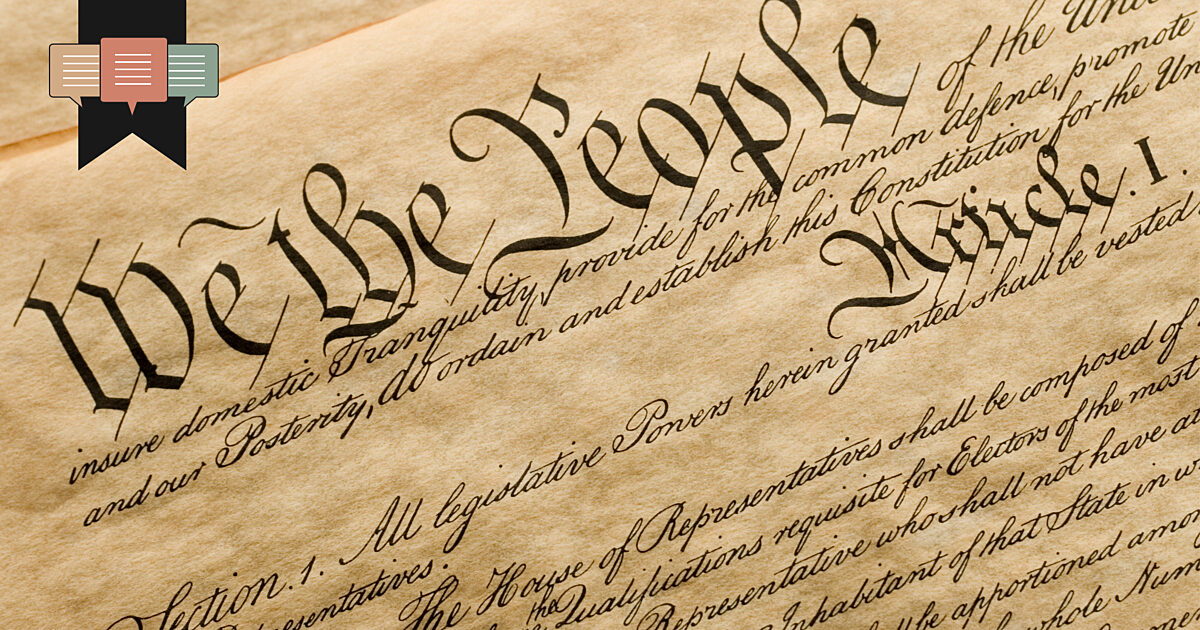 We the People of the Uni
insure domestic Tranquility, provide for the common defence, promote
and our Posterity, do ordain and establish this Constitution for the Un
Article. I.
Section. 1. All legislative Powers herein granted shall be vested
resentatives.
The House of Representatives shall be composed of
the Qualifications requisite for Electors of the most
Representative who shall not have
Inhabitant of that State in
be apportioned amon
whole Num